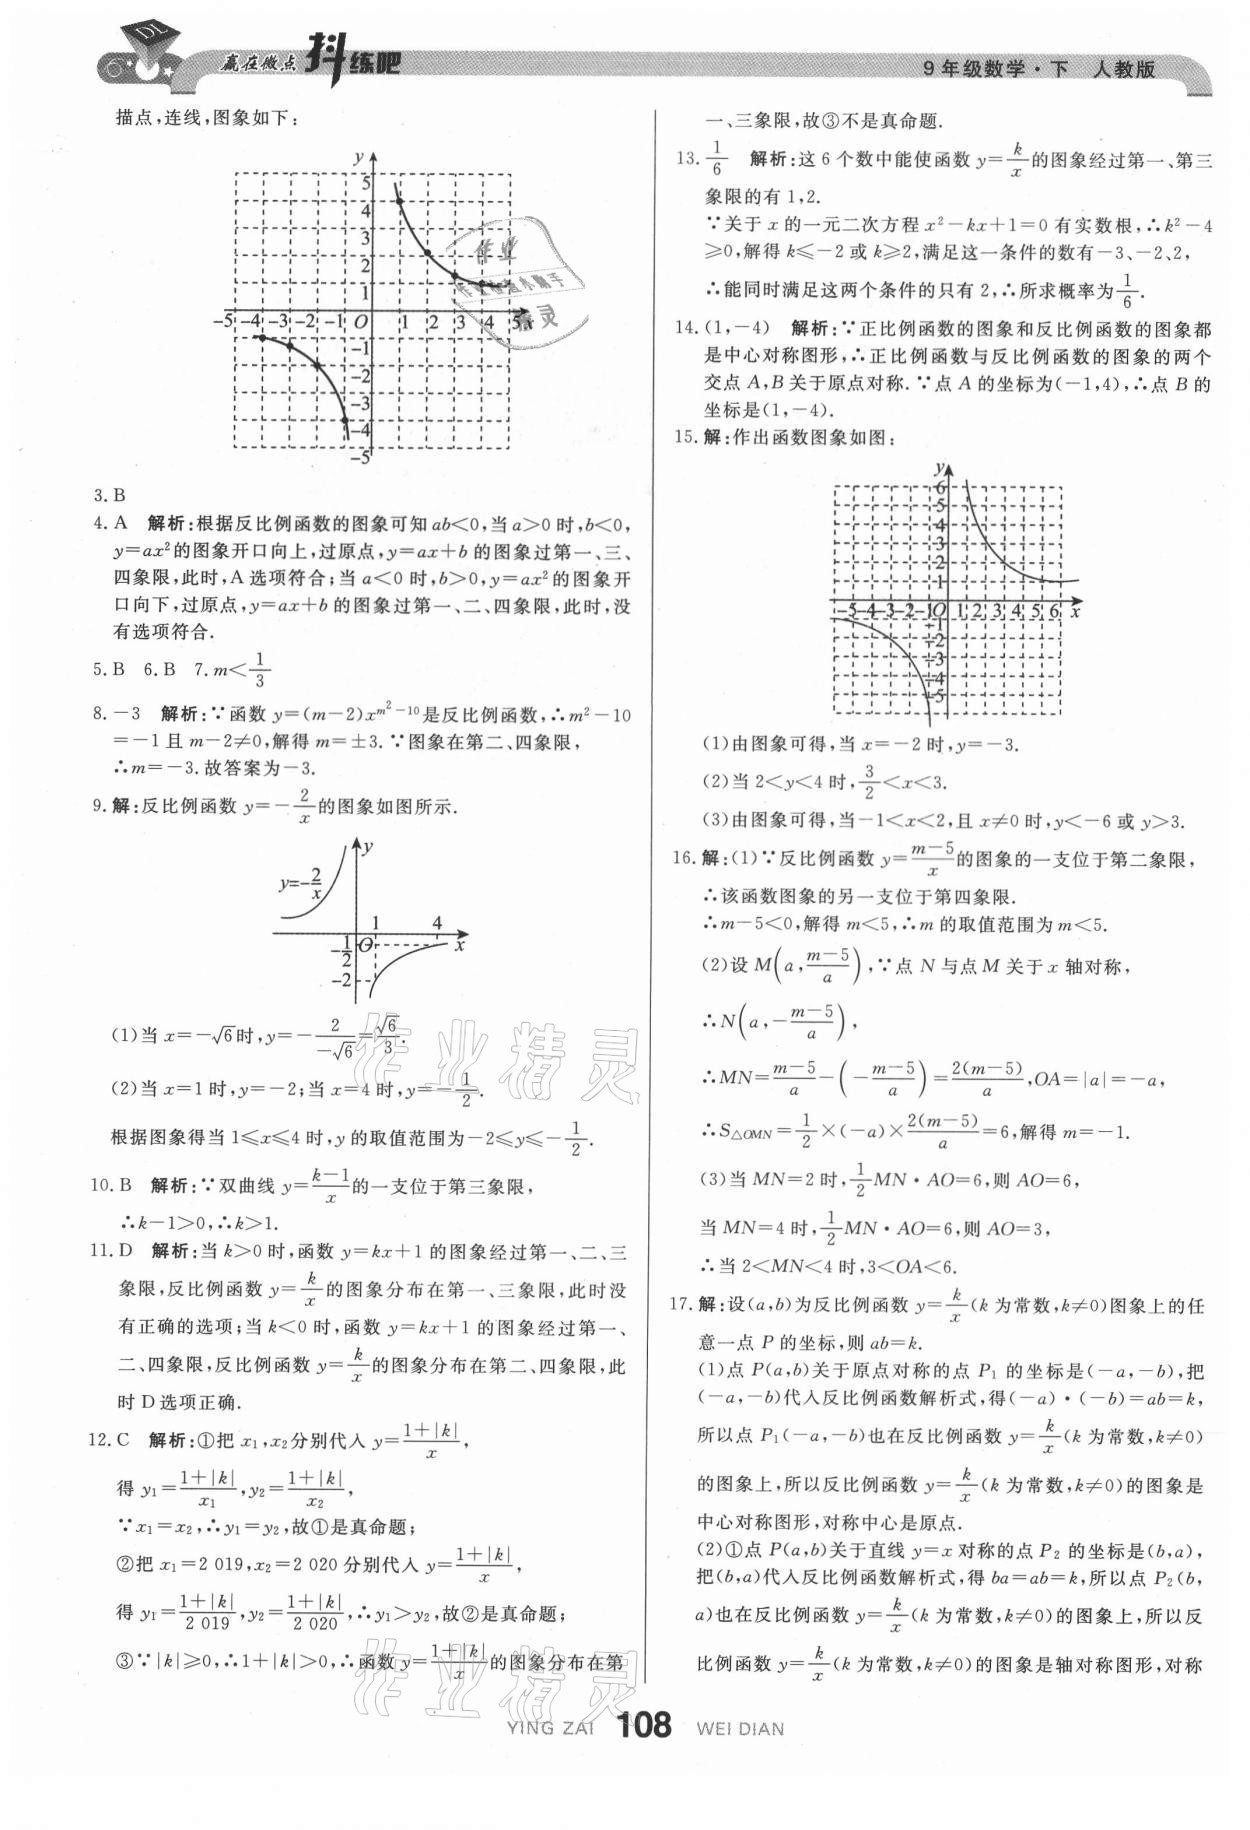 赢在微点 抖练吧
9年级数学·下 人教版
描点,连线,图象如下:
3. B
4. A 解析:根据反比例函数的图象可知 ab<0,当 a>0 时,b<0,
y=ax²的图象开口向上,过原点,y=ax+b 的图象过第一、三、
四象限,此时,A 选项符合;当 a<0 时,b>0,y=ax²的图象开
口向下,过原点,y=ax+b 的图象过第一、二、四象限,此时,没
有选项符合.
5. B 6. B 7. m<1/3
8. -3 解析:∵函数 y=(m-2)x^(m²-10)是反比例函数,∴m²-10
=-1 且 m-2≠0,解得 m=±3.∵图象在第二、四象限,
∴m=-3.故答案为-3.
9. 解:反比例函数 y=-2/x的图象如图所示.
y=-2/x
(1)当 x=-√6时,y=-2/(-√6)=√6/3.
(2)当 x=1 时,y=-2;当 x=4 时,y=-1/2.
根据图象得当 1≤x≤4 时,y 的取值范围为-2≤y≤-1/2.
10. B 解析:∵双曲线 y=(k-1)/x的一支位于第三象限,
∴k-1>0,∴k>1.
11. D 解析:当 k>0 时,函数 y=kx+1 的图象经过第一、二、三
象限,反比例函数 y=k/x的图象分布在第一、三象限,此时没
有正确的选项;当 k<0 时,函数 y=kx+1 的图象经过第一、
二、四象限,反比例函数 y=k/x的图象分布在第二、四象限,此
时 D 选项正确.
12. C 解析:①把 x₁,x₂分别代入 y=(1+|k|)/x,
得 y₁=(1+|k|)/x₁,y₂=(1+|k|)/x₂,
∵x₁=x₂,∴y₁=y₂,故①是真命题;
②把 x₁=2 019,x₂=2 020 分别代入 y=(1+|k|)/x,
得 y₁=(1+|k|)/2 019,y₂=(1+|k|)/2 020,∴y₁>y₂,故②是真命题;
③∵|k|≥0,∴1+|k|>0,∴函数 y=(1+|k|)/x的图象分布在第
一、三象限,故③不是真命题.
13. 1/6 解析:这 6 个数中能使函数 y=k/x的图象经过第一、第三
象限的有 1,2.
∵关于 x 的一元二次方程 x²-kx+1=0 有实数根,∴k²-4
≥0,解得 k≤-2 或 k≥2,满足这一条件的数有-3、-2、2,
∴能同时满足这两个条件的只有 2,∴所求概率为1/6.
14. (1,-4) 解析:∵正比例函数的图象和反比例函数的图象都
是中心对称图形,∴正比例函数与反比例函数的图象的两个
交点 A,B 关于原点对称.∵点 A 的坐标为(-1,4),∴点 B 的
坐标是(1,-4).
15. 解:作出函数图象如图:
(1)由图象可得,当 x=-2 时,y=-3.
(2)当 2<y<4 时,3/2<x<3.
(3)由图象可得,当-1<x<2,且 x≠0 时,y<-6 或 y>3.
16. 解:(1)∵反比例函数 y=(m-5)/x的图象的一支位于第二象限,
∴该函数图象的另一支位于第四象限.
∴m-5<0,解得 m<5,∴m 的取值范围为 m<5.
(2)设 M(a,(m-5)/a),∵点 N 与点 M 关于 x 轴对称,
∴N(a,-(m-5)/a),
∴MN=(m-5)/a-(-(m-5)/a)=2(m-5)/a,OA=|a|=-a,
∴S△OMN=1/2×(-a)×2(m-5)/a=6,解得 m=-1.
(3)当 MN=2 时,1/2MN·AO=6,则 AO=6,
当 MN=4 时,1/2MN·AO=6,则 AO=3,
∴当 2<MN<4 时,3<OA<6.
17. 解:设(a,b)为反比例函数 y=k/x(k 为常数,k≠0)图象上的任
意一点 P 的坐标,则 ab=k.
(1)点 P(a,b)关于原点对称的点 P₁ 的坐标是(-a,-b),把
(-a,-b)代入反比例函数解析式,得(-a)·(-b)=ab=k,
所以点 P₁(-a,-b)也在反比例函数 y=k/x(k 为常数,k≠0)
的图象上,所以反比例函数 y=k/x(k 为常数,k≠0)的图象是
中心对称图形,对称中心是原点.
(2)①点 P(a,b)关于直线 y=x 对称的点 P₂ 的坐标是(b,a),
把(b,a)代入反比例函数解析式,得 ba=ab=k,所以点 P₂(b,
a)也在反比例函数 y=k/x(k 为常数,k≠0)的图象上,所以反
比例函数 y=k/x(k 为常数,k≠0)的图象是轴对称图形,对称
作业精灵
YING ZAI 108 WEI DIAN